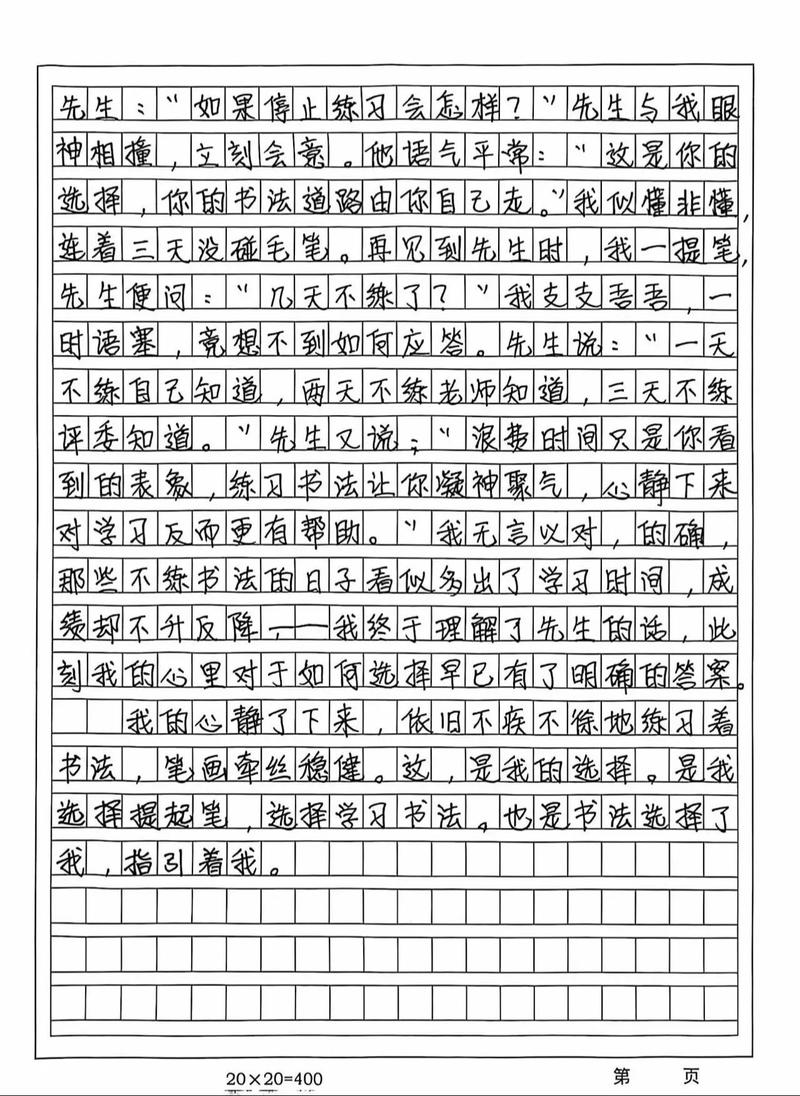 先生："如果停止练习会怎样？"先生与我眼
神相撞，立刻会意。他语气平常："这是你的
选择，你的书法道路由你自己走。"我似懂非懂，
连着三天没碰毛笔。再见到先生时，我一提笔，
先生便问："几天不练了？"我支支吾吾，一
时语塞，竟想不到如何应答。先生说："一天
不练自己知道，两天不练老师知道，三天不练
评委知道。"先生又说；"浪费时间只是你看
到的表象，练习书法让你凝神聚气，心静下来
对学习反而更有帮助。"我无言以对，的确，
那些不练书法的日子看似多出了学习时间，成
绩却不升反降，——我终于理解了先生的话，此
刻我的心里对于如何选择早已有了明确的答案。
我的心静了下来，依旧不疾不徐地练习着
书法，笔画牵丝稳健。这，是我的选择。是我
选择提起笔，选择学习书法。也是书法选择了
我，指引着我。
20×20=400
第 页